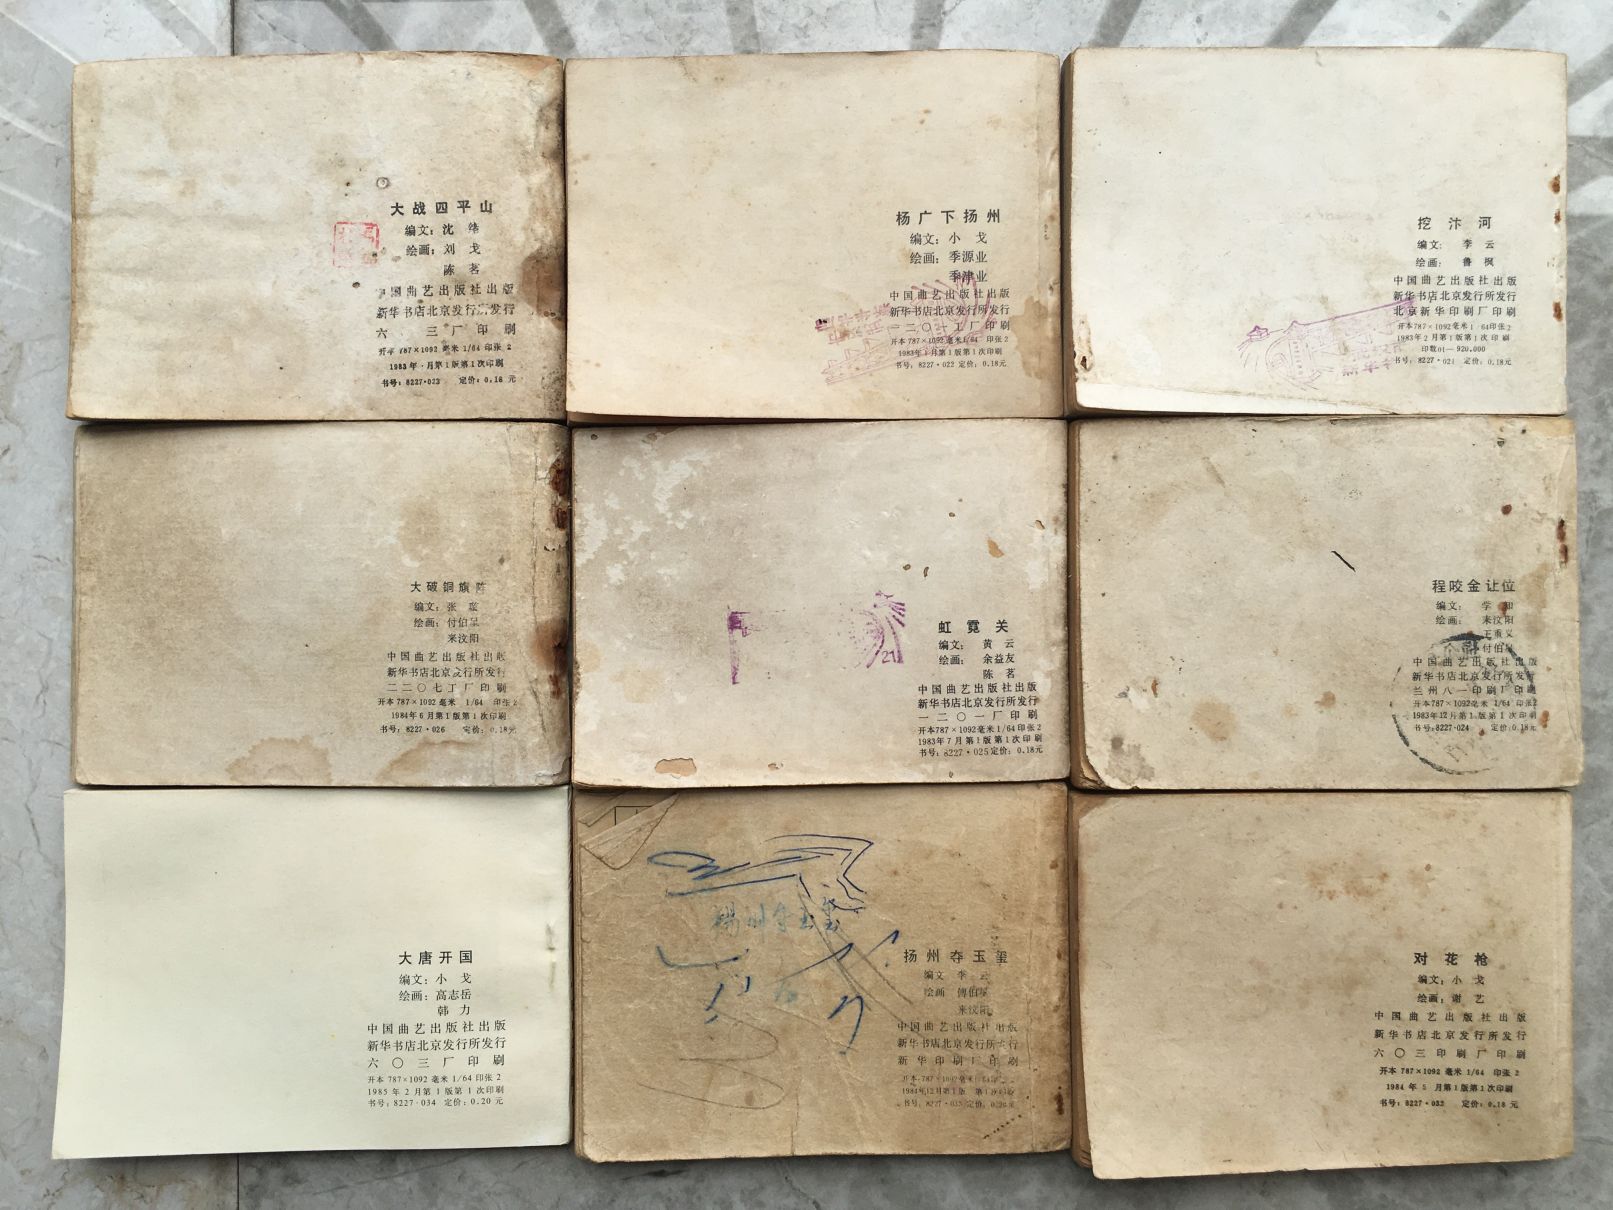 大战四平山
编文：沈纬
绘画：刘戈
陈茗
中国曲艺出版社出版
新华书店北京发行所发行
六 三厂印刷
开本 787×1092 毫米 1/64 印张 2
1983年 月第1版第1次印刷
书号：8227·023 定价：0.18 元
杨广下扬州
编文：小戈
绘画：季源业
季津业
中国曲艺出版社出版
新华书店北京发行所发行
一二〇一工厂印刷
开本787×1092毫米1/64 印张2
1983年1月第1版第1次印刷
书号：8227·022 定价：0.18元
挖汴河
编文：李云
绘画：鲁枫
中国曲艺出版社出版
新华书店北京发行所发行
北京新华印刷厂印刷
开本787×1092毫米1/64印张2
1983年2月第1版第1次印刷
印数01—920.000
书号：8227·021 定价：0.18元
大破铜旗阵
编文：张
绘画：付伯星
来汶阳
中国曲艺出版社出版
新华书店北京发行所发行
二二〇七工厂印刷
开本787×1092毫米 1/64 印张2
1984年6月第1版第1次印刷
书号：8227·026 定价：0.18元
21
虹霓关
编文：黄云
绘画：余益友
陈茗
中国曲艺出版社出版
新华书店北京发行所发行
一二〇一厂印刷
开本787×1092毫米1/64印张2
1983年7月第1版第1次印刷
书号：8227·025定价：0.18元
程咬金让位
编文：学知
绘画：来汶阳
王重义
付伯星
中国曲艺出版社出版
新华书店北京发行所发行
兰州八一印刷厂印刷
开本787×1092毫米1/64印张2
1983年12月第1版第1次印刷
书号：8227·024 定价：0.18元
大唐开国
编文：小戈
绘画：高志岳
韩力
中国曲艺出版社出版
新华书店北京发行所发行
六〇三厂印刷
开本 787×1092 毫米 1/64 印张 2
1985 年 2 月第 1 版第 1 次印刷
书号：8227·034 定价：0.20 元
扬州夺玉玺
扬州夺玉玺
编文 李云
绘画 傅伯星
来汶阳
中国曲艺出版社出版
新华书店北京发行所发行
新华印刷厂印刷
开本·787×1092毫米1/64印张2
1984年12月第1版 第1次印刷
书号：8227·035 定价：0.20元
对花枪
编文：小戈
绘画：谢艺
中国曲艺出版社出版
新华书店北京发行所发行
六〇三印刷厂印刷
开本 787×1092 毫米 1/64 印张 2
1984 年 5 月第1版第1次印刷
书号：8227·032 定价：0.18 元